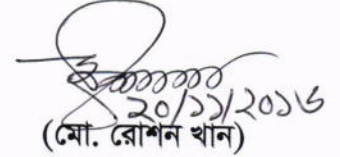 ২০/১১/২০১৬
(মো. রোশন খান)